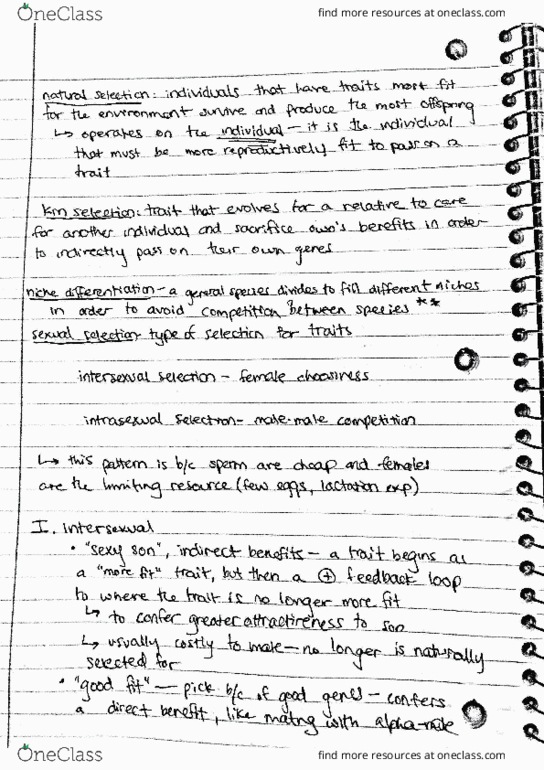 OneClass
find more resources at oneclass.com
natural selection: individuals that have traits most fit
for the environment survive and produce the most offspring
↳ operates on the individual - it is the individual
that must be more reproductively fit to pass on a
trait
kin selection: trait that evolves for a relative to care
for another individual and sacrifice own's benefits in order
to indirectly pass on their own genes
niche differentiation - a general species divides to fill different niches
in order to avoid competition between species **
sexual selection - type of selection for traits
intersexual selection - female choosiness
intrasexual selection - male-male competition
↳ this pattern is b/c sperm are cheap and females
are the limiting resource (few eggs, lactation exp)
I. intersexual
• "sexy son", indirect benefits - a trait begins as
a "more fit" trait, but then a ⊕ feedback loop
to where the trait is no longer more fit
↳ to confer greater attractiveness to son
↳ usually costly to male - no longer is naturally
selected for
• "good fit" - pick b/c of good genes - confers
a direct benefit, like mating with alpha-male
OneClass
find more resources at oneclass.com